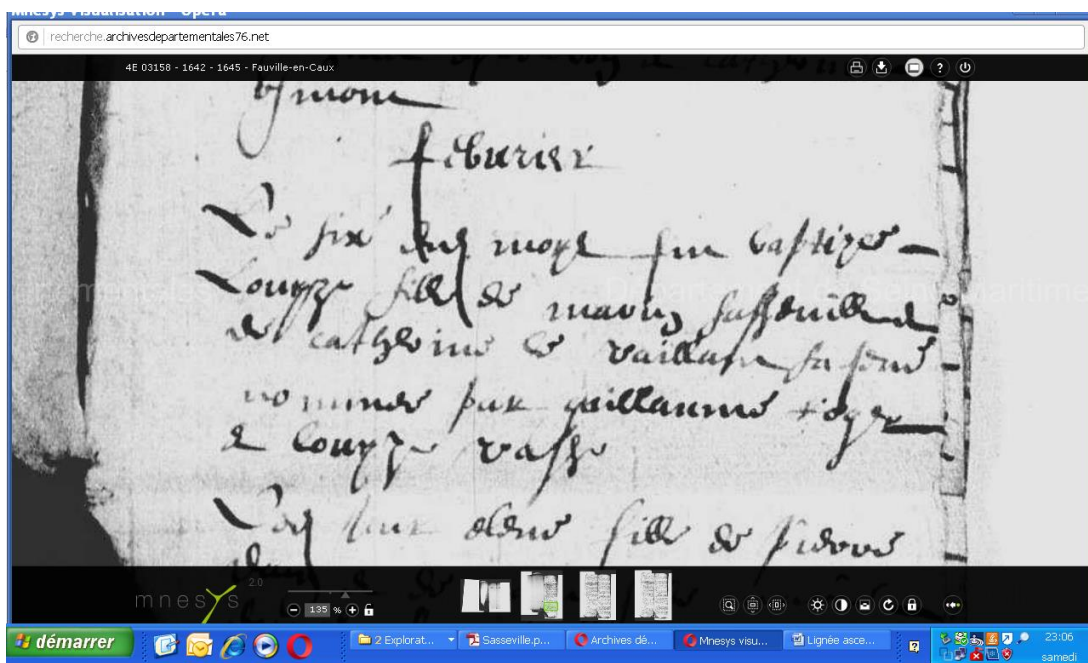 Mnesys Visualisation - Opera
recherche.archivesdepartementales76.net
4E 03158 - 1642 - 1645 - Fauville-en-Caux
?
febvrier
Le six dud moys fut baptizee
Louyze fille de marin sasseuille et
de catherine le vaillant sa feme
nommee par guillaume
et Louyze vasse
Led jour fille de pierre
mnesys 2.0
135 %
démarrer
2 Explorat...
Sasseville.p...
Archives dé...
Mnesys visu...
Lignée asce...
?
23:06
samedi